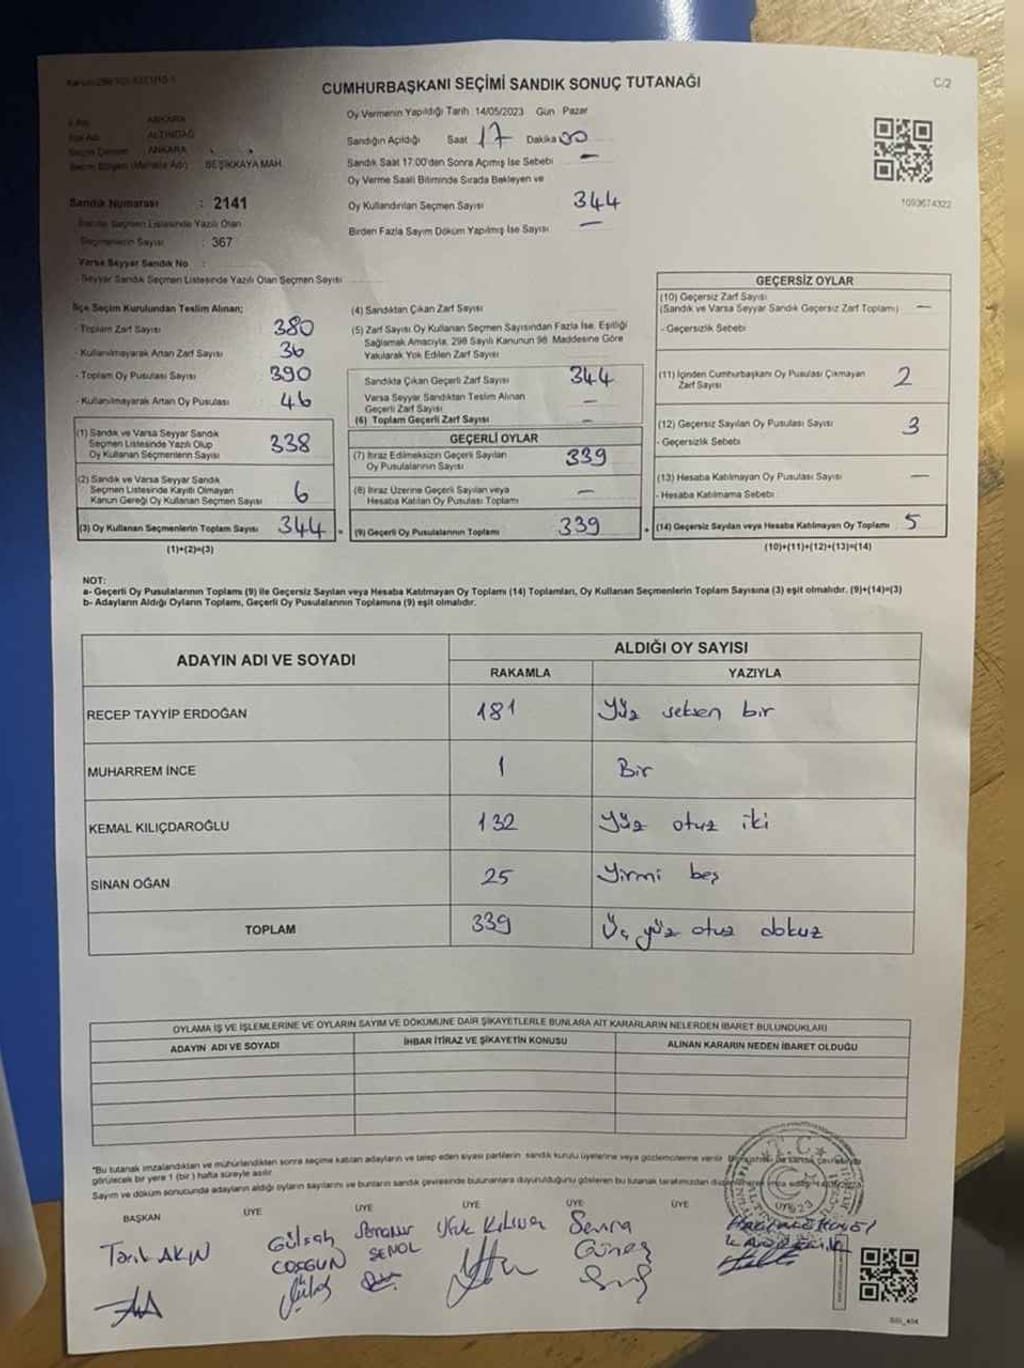 CUMHURBAŞKANI SEÇİMİ SANDIK SONUÇ TUTANAĞI
C/2
Oy Vermenin Yapıldığı Tarih :14/05/2023 Gün Pazar
ANKARA
ALTINDAĞ
ANKARA
Seçim Bölgesi (Mahalle Adı) BEŞİKKAYA MAH.
Sandığın Açıldığı Saat 17 Dakika 00
Sandık Saat 17:00'den Sonra Açımış İse Sebebi —
Oy Verme Saati Bitiminde Sırada Bekleyen ve
Oy Kullandırılan Seçmen Sayısı 344
Birden Fazla Sayım Döküm Yapılmış İse Sayısı —
1093674322
Sandık Numarası : 2141
Sandık Seçmen Listesinde Yazılı Olan
Seçmenlerin Sayısı : 367
Varsa Seyyar Sandık No :
- Seyyar Sandık Seçmen Listesinde Yazılı Olan Seçmen Sayısı
İlçe Seçim Kurulundan Teslim Alınan;
- Toplam Zarf Sayısı 380
- Kullanılmayarak Artan Zarf Sayısı 36
- Toplam Oy Pusulası Sayısı 390
- Kullanılmayarak Artan Oy Pusulası 46
(1) Sandık ve Varsa Seyyar Sandık
Seçmen Listesinde Yazılı Olup
Oy Kullanan Seçmenlerin Sayısı 338
(2) Sandık ve Varsa Seyyar Sandık
Seçmen Listesinde Kayıtlı Olmayan
Kanun Gereği Oy Kullanan Seçmen Sayısı 6
(3) Oy Kullanan Seçmenlerin Toplam Sayısı 344
(1)+(2)=(3)
(4) Sandıktan Çıkan Zarf Sayısı
(5) Zarf Sayısı Oy Kullanan Seçmen Sayısından Fazla İse, Eşitliği
Sağlamak Amacıyla, 298 Sayılı Kanunun 98. Maddesine Göre
Yakılarak Yok Edilen Zarf Sayısı
Sandıkta Çıkan Geçerli Zarf Sayısı 344
Varsa Seyyar Sandıktan Teslim Alınan
Geçerli Zarf Sayısı —
(6) Toplam Geçerli Zarf Sayısı —
GEÇERLİ OYLAR
(7) İtiraz Edilmeksizin Geçerli Sayılan
Oy Pusulalarının Sayısı 339
(8) İtiraz Üzerine Geçerli Sayılan veya
Hesaba Katılan Oy Pusulası Toplamı —
= (9) Geçerli Oy Pusulalarının Toplamı 339
GEÇERSİZ OYLAR
(10) Geçersiz Zarf Sayısı
(Sandık ve Varsa Seyyar Sandık Geçersiz Zarf Toplamı) —
- Geçersizlik Sebebi
(11) İçinden Cumhurbaşkanı Oy Pusulası Çıkmayan
Zarf Sayısı 2
(12) Geçersiz Sayılan Oy Pusulası Sayısı 3
- Geçersizlik Sebebi
(13) Hesaba Katılmayan Oy Pusulası Sayısı —
- Hesaba Katılmama Sebebi
+ (14) Geçersiz Sayılan veya Hesaba Katılmayan Oy Toplamı 5
(10)+(11)+(12)+(13)=(14)
NOT:
a- Geçerli Oy Pusulalarının Toplamı (9) ile Geçersiz Sayılan veya Hesaba Katılmayan Oy Toplamı (14) Toplamları, Oy Kullanan Seçmenlerin Toplam Sayısına (3) eşit olmalıdır. (9)+(14)=(3)
b- Adayların Aldığı Oyların Toplamı, Geçerli Oy Pusulalarının Toplamına (9) eşit olmalıdır.
ADAYIN ADI VE SOYADI
ALDIĞI OY SAYISI
RAKAMLA YAZIYLA
RECEP TAYYİP ERDOĞAN 181 Yüz seksen bir
MUHARREM İNCE 1 Bir
KEMAL KILIÇDAROĞLU 132 Yüz otuz iki
SİNAN OĞAN 25 Yirmi beş
TOPLAM 339 Üç yüz otuz dokuz
OYLAMA İŞ VE İŞLEMLERİNE VE OYLARIN SAYIM VE DÖKÜMÜNE DAİR ŞİKAYETLERLE BUNLARA AİT KARARLARIN NELERDEN İBARET BULUNDUKLARI
ADAYIN ADI VE SOYADI İHBAR İTİRAZ VE ŞİKAYETİN KONUSU ALINAN KARARIN NEDEN İBARET OLDUĞU
"Bu tutanak imzalandıktan ve mühürlendikten sonra seçime katılan adayların ve talep eden siyasi partilerin sandık kurulu üyelerine veya gözlemcilerine verilir
görülecek bir yere 1 (bir) hafta süreyle asılır.
Sayım ve döküm sonucunda adayların aldığı oyların sayılarını ve bunların sandık çevresinde bulunanlara duyurulduğunu gösteren bu tutanak tarafımızdan
BAŞKAN ÜYE ÜYE ÜYE ÜYE ÜYE
Tarık AKIN
Gülşah
COŞGUN
ŞENOL
Ufuk
Semra
Güneş